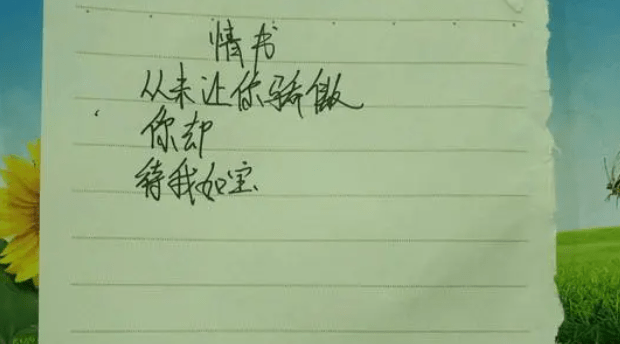 情书
从未让你骄傲
你却
待我如宝